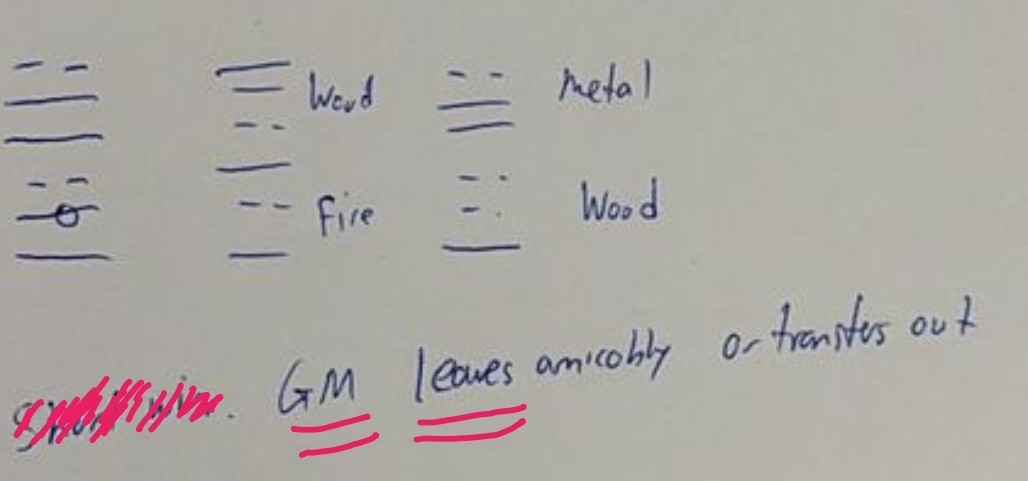 Wood
Metal
Fire
Wood
GM leaves amicobly or transfers out